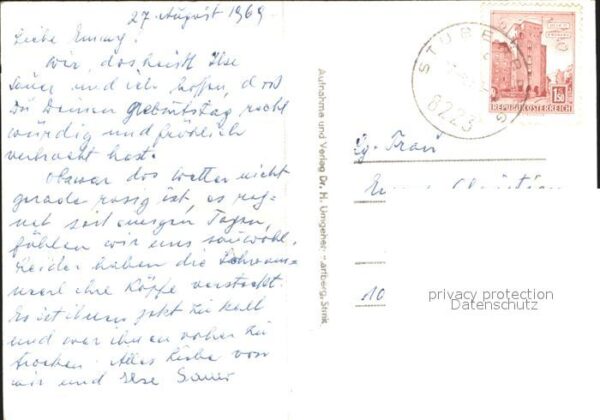 27. August 1969
Liebe Emmy!
Wir, das heißt Ilse
Sauer und ich hoffen, daß
Du Deinen Geburtstag recht
würdig und fröhlich
verbracht hast.
Obzwar das Wetter nicht
gerade rosig ist, es reg-
net seit einigen Tagen,
fühlen wir uns sauwohl.
Leider haben die Schwam-
merl ihre Köpfe versteckt.
Es ist ihnen jetzt zu kalt
und war ihnen vorher zu
trocken. Alles Liebe von
mir und Ilse Sauer
Aufnahme und Verlag Dr. H. Umgeher, Hartberg, Stmk
STUBENBERG
8223
1.50
REPUBLIK ÖSTERREICH
Frau
10
privacy protection
Datenschutz